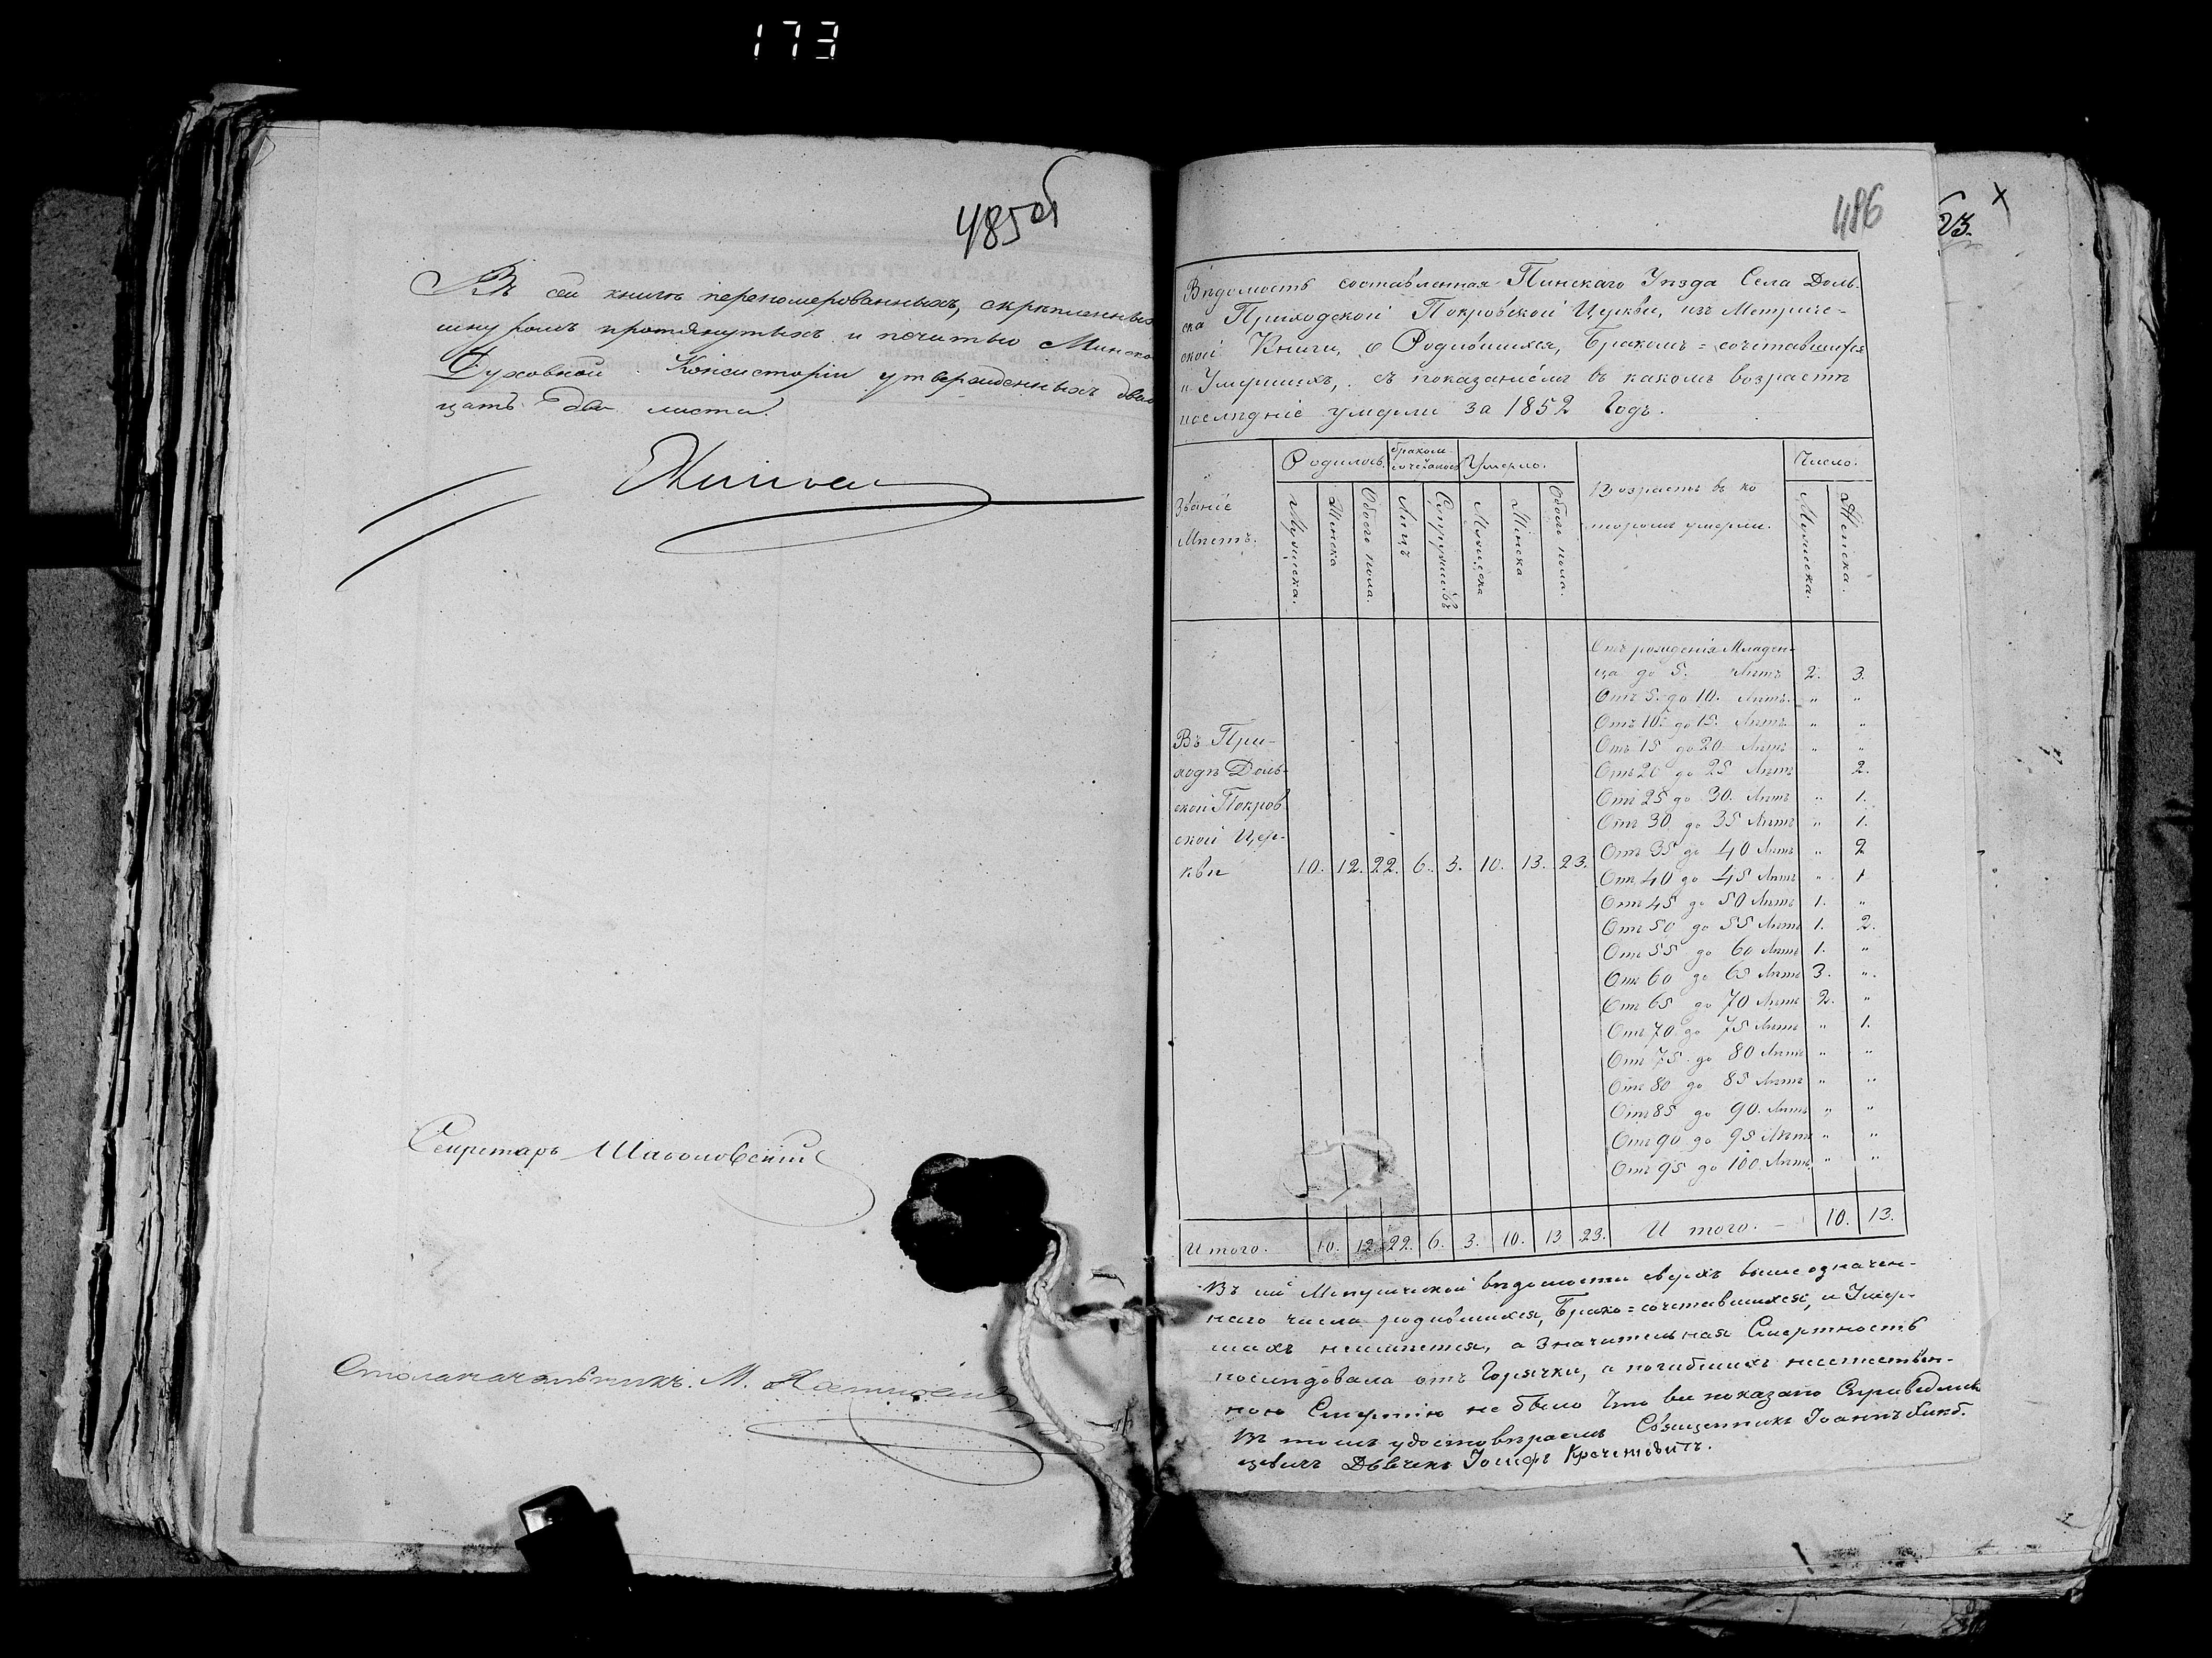 173
485об
Въ сей книгѣ перенумерованныхъ, скрѣпленныхъ
шнуромъ протянутыхъ и печатью Минской
Духовной Консисторіи утвержденныхъ двад
цать два листа.
Секретарь
Столоначальникъ М.
486
Вѣдомость составленная Пинскаго Уѣзда Села Доль-
ска Приходской Покровской Церкви, изъ Метриче-
ской Книги, о Родившихся, Бракомъ=сочетавшихся
и Умершихъ, съ показаніемъ въ какомъ возрастѣ
послѣдніе умерли за 1852 Годъ.
Званіе Мѣстъ.
Родилось. Бракомъ сочеталось Умерло. Возрастъ въ ко Число.
торомъ умерли.
Мужеска. Женска Обоего пола. Лицъ Супружествъ Мужеска Женска Обоего пола. Мужеска. Женска.
Отъ рожденія Младен-
ца до 5. Лѣтъ 2. 3.
Отъ 5. до 10. Лѣтъ. " "
Отъ 10. до 15. Лѣтъ " "
Отъ 15 до 20 Лѣтъ " "
Отъ 20 до 25 Лѣтъ 2.
Отъ 25 до 30. Лѣтъ " 1.
Отъ 30 до 35 Лѣтъ " 1.
Отъ 35 до 40 Лѣтъ " 2
Отъ 40 до 45 Лѣтъ " 1
Отъ 45 до 50 Лѣтъ 1. "
Отъ 50 до 55 Лѣтъ 1. 2.
Отъ 55 до 60 Лѣтъ 1. "
Отъ 60 до 65 Лѣтъ 3. ".
Отъ 65 до 70 Лѣтъ 2. "
Отъ 70 до 75 Лѣтъ " 1.
Отъ 75 до 80 Лѣтъ " "
Отъ 80 до 85 Лѣтъ " "
Отъ 85 до 90. Лѣтъ " "
Отъ 90 до 95 Лѣтъ " "
Отъ 95 до 100. Лѣтъ " "
Въ При-
ходѣ Доль-
ской Покров
ской Цер-
кви 10. 12. 22. 6. 3. 10. 13. 23.
Итого. 10. 12. 22. 6. 3. 10. 13 23. Итого. 10. 13.
Въ сей Метрической вѣдомости сверхъ вышеозначен-
наго числа родившихся, Брако=сочетавшихся, и Умер-
шихъ неимѣется, а значительная Смертность
послѣдовала отъ Горячки, а погибшихъ неестествен-
ною Смертію не было Что все показано Справедливо
Въ томъ удостовѣряемъ Священникъ Іоаннъ
Дьячекъ Іосифъ